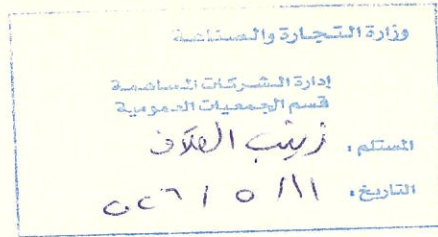 وزارة التجارة والصناعة
إدارة الشركات المساهمة
قسم الجمعيات العمومية
المستلم : زينب العلاف
التاريخ : ١١ / ٥ /